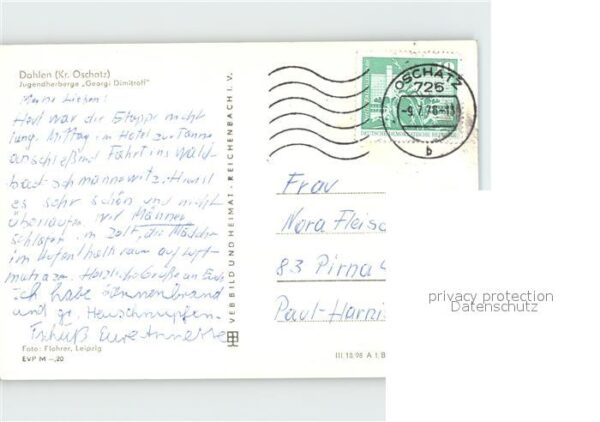 Dahlen (Kr. Oschatz)
Jugendherberge „Georgi Dimitroff"
Meine Lieben!
Heut war die Etappe nicht
lang. Mittag im Hotel zur Tanne
anschließend Fahrt ins Wald-
bad schmannewitz. Hier ist
es sehr schön und nicht
überlaufen. Wir Männer
schlafen im Zelt, die Mädchen
im Aufenthaltsraum auf Luft-
matratzen. Herzliche Grüße an Euch
Ich habe Sonnenbrand
und gr. Heuschnupfen.
Tschüß Eure Annerose
Foto: Flohrer, Leipzig
EVP M –,20
VEB BILD UND HEIMAT · REICHENBACH I. V.
10
DEUTSCHE DEMOKRATISCHE REPUBLIK
OSCHATZ
726
b
Frau
Nora Fleisc
83 Pirna
Paul-Harni
III 18 98 A 1 B
privacy protection
Datenschutz